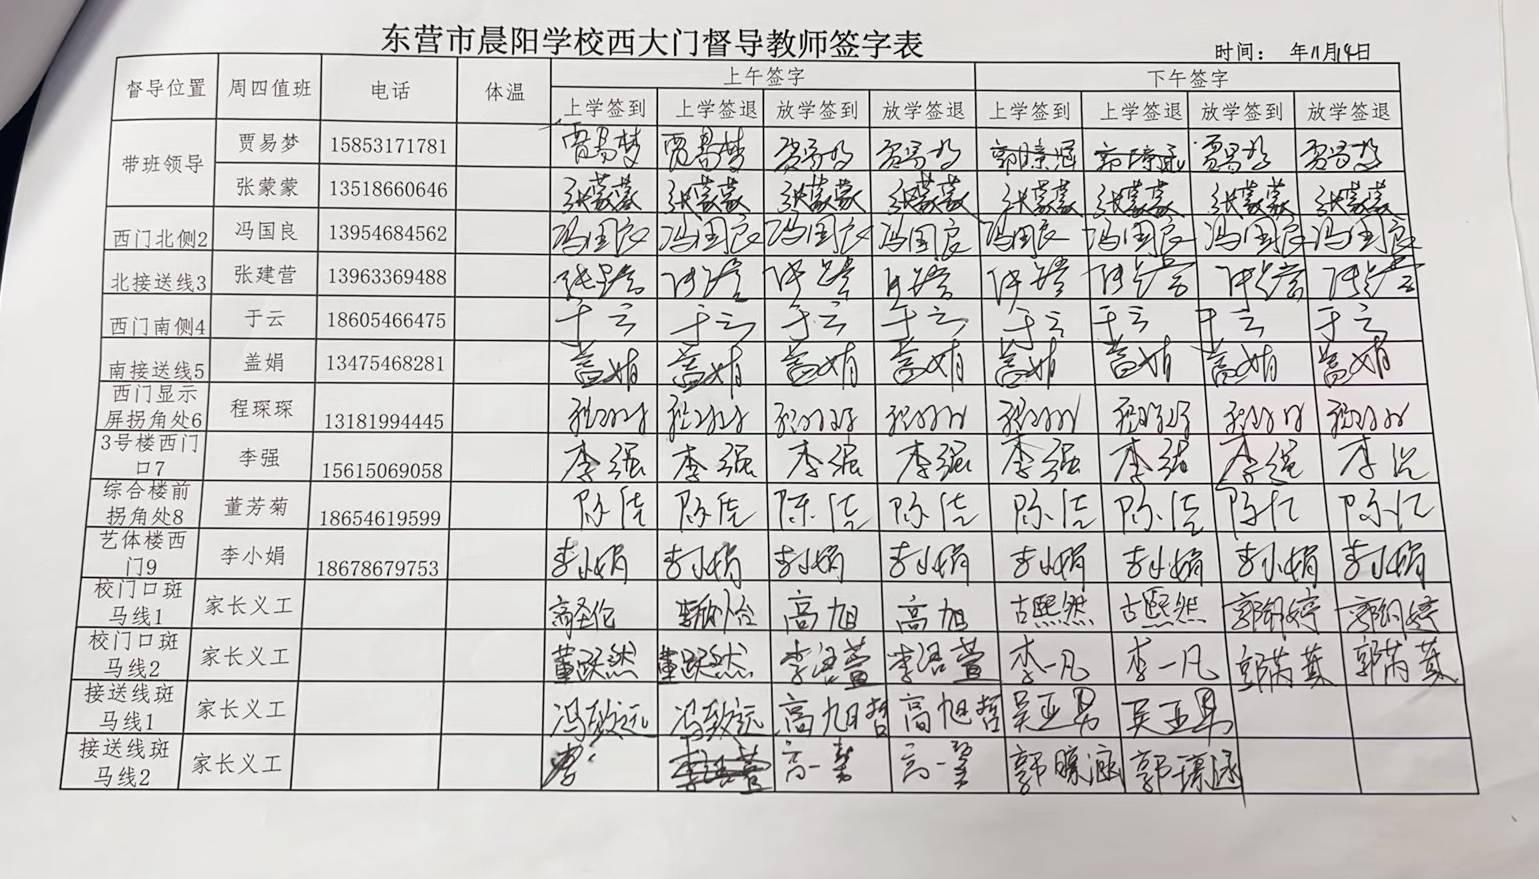 东营市晨阳学校西大门督导教师签字表
时间： 年11月14日
督导位置 周四值班 电话 体温 上午签字 下午签字
上学签到 上学签退 放学签到 放学签退 上学签到 上学签退 放学签到 放学签退
带班领导 贾易梦 15853171781 贾易梦 贾易梦 贾易梦 贾易梦 贾易梦 贾易梦
张蒙蒙 13518660646 张蒙蒙 张蒙蒙 张蒙蒙 张蒙蒙 张蒙蒙 张蒙蒙 张蒙蒙 张蒙蒙
西门北侧2 冯国良 13954684562 冯国良 冯国良 冯国良 冯国良 冯国良 冯国良 冯国良 冯国良
北接送线3 张建营 13963369488 张建营 张建营 张建营 张建营 张建营 张建营 张建营 张建营
西门南侧4 于云 18605466475 于云 于云 于云 于云 于云 于云 于云 于云
南接送线5 盖娟 13475468281 盖娟 盖娟 盖娟 盖娟 盖娟 盖娟 盖娟 盖娟
西门显示
屏拐角处6 程琛琛 13181994445 程琛琛 程琛琛 程琛琛 程琛琛 程琛琛 程琛琛 程琛琛 程琛琛
3号楼西门
口7 李强 15615069058 李强 李强 李强 李强 李强 李强 李强 李强
综合楼前
拐角处8 董芳菊 18654619599
艺体楼西
门9 李小娟 18678679753 李小娟 李小娟 李小娟 李小娟 李小娟 李小娟 李小娟 李小娟
校门口斑
马线1 家长义工 高旭 高旭 古熙然 古熙然
校门口斑
马线2 家长义工 董跃然 董跃然 李浩萱 李浩萱 李一凡 李一凡
接送线斑
马线1 家长义工 冯致远 冯致远 高旭哲 高旭哲 吴亚男 吴亚男
接送线斑
马线2 家长义工